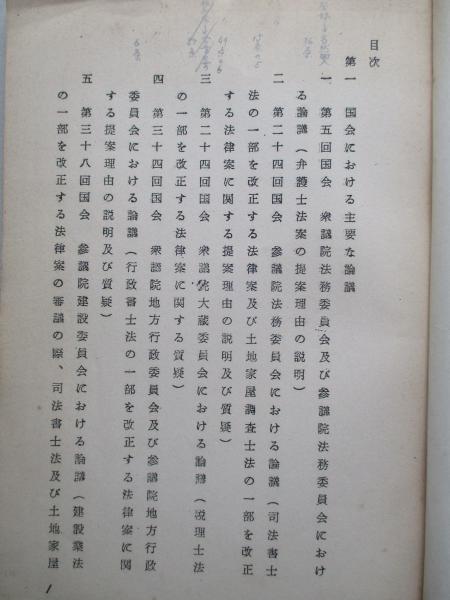 目次
第一 国会における主要な論議
一 第五回国会 衆議院法務委員会及び参議院法務委員会におけ
る論議(弁護士法案の提案理由の説明)
二 第二十四回国会 参議院法務委員会における論議(司法書士
法の一部を改正する法律案及び土地家屋調査士法の一部を改正
する法律案に関する提案理由の説明及び質疑)
三 第二十四回国会 衆議院大蔵委員会における論議(税理士法
の一部を改正する法律案に関する質疑)
四 第三十四回国会 衆議院地方行政委員会及び参議院地方行政
委員会における論議(行政書士法の一部を改正する法律案に関
する提案理由の説明及び質疑)
五 第三十八回国会 参議院建設委員会における論議(建設業法
の一部を改正する法律案の審議の際、司法書士法及び土地家屋
1